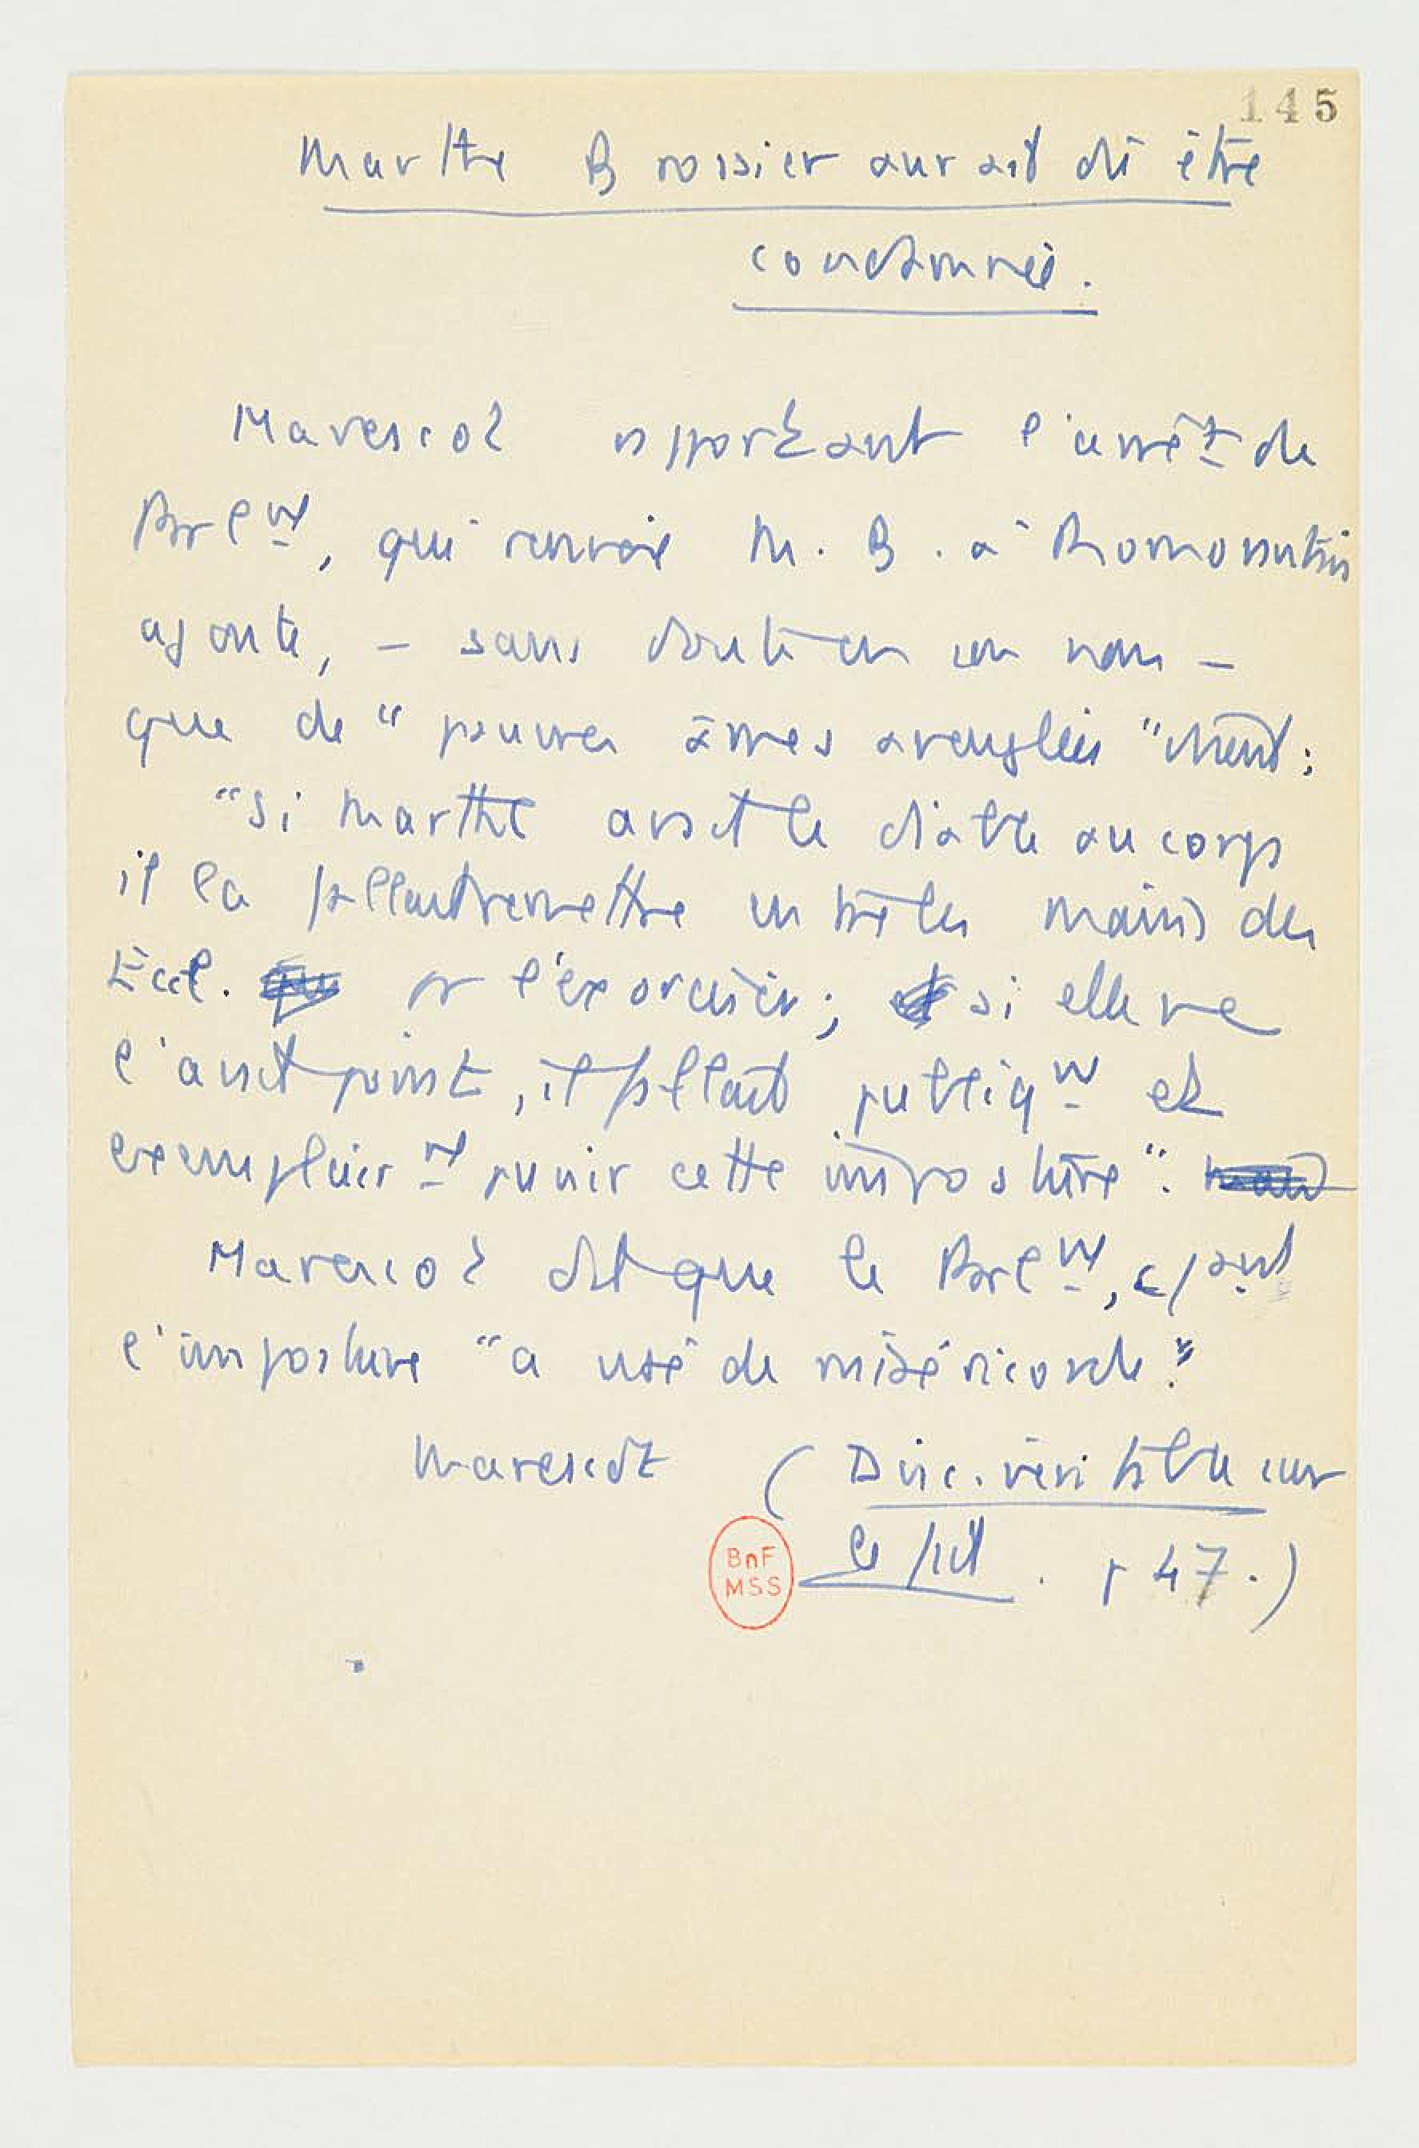 145
Marthe Brossier aurait dû être
condamnée.
Marescot rapportant l'arrêt de
Parlnt, qui renvoie M. B. à Romorantin
ajoute, – sans doute en son nom –
que de "pauvres âmes aveuglées" disent :
"Si Marthe avait le diable au corps
il la fallait remettre entre les mains des
Eccl. pr l'exorciser ; si elle ne
l'avait point, il fallait publiqnt et
exemplairnt punir cette imposture".
Marescot dit que le Parlnt,
l'imposture "a usé de miséricorde."
Marescot (Disc. véritable sur
le fait. p 47.)
BnF
MSS